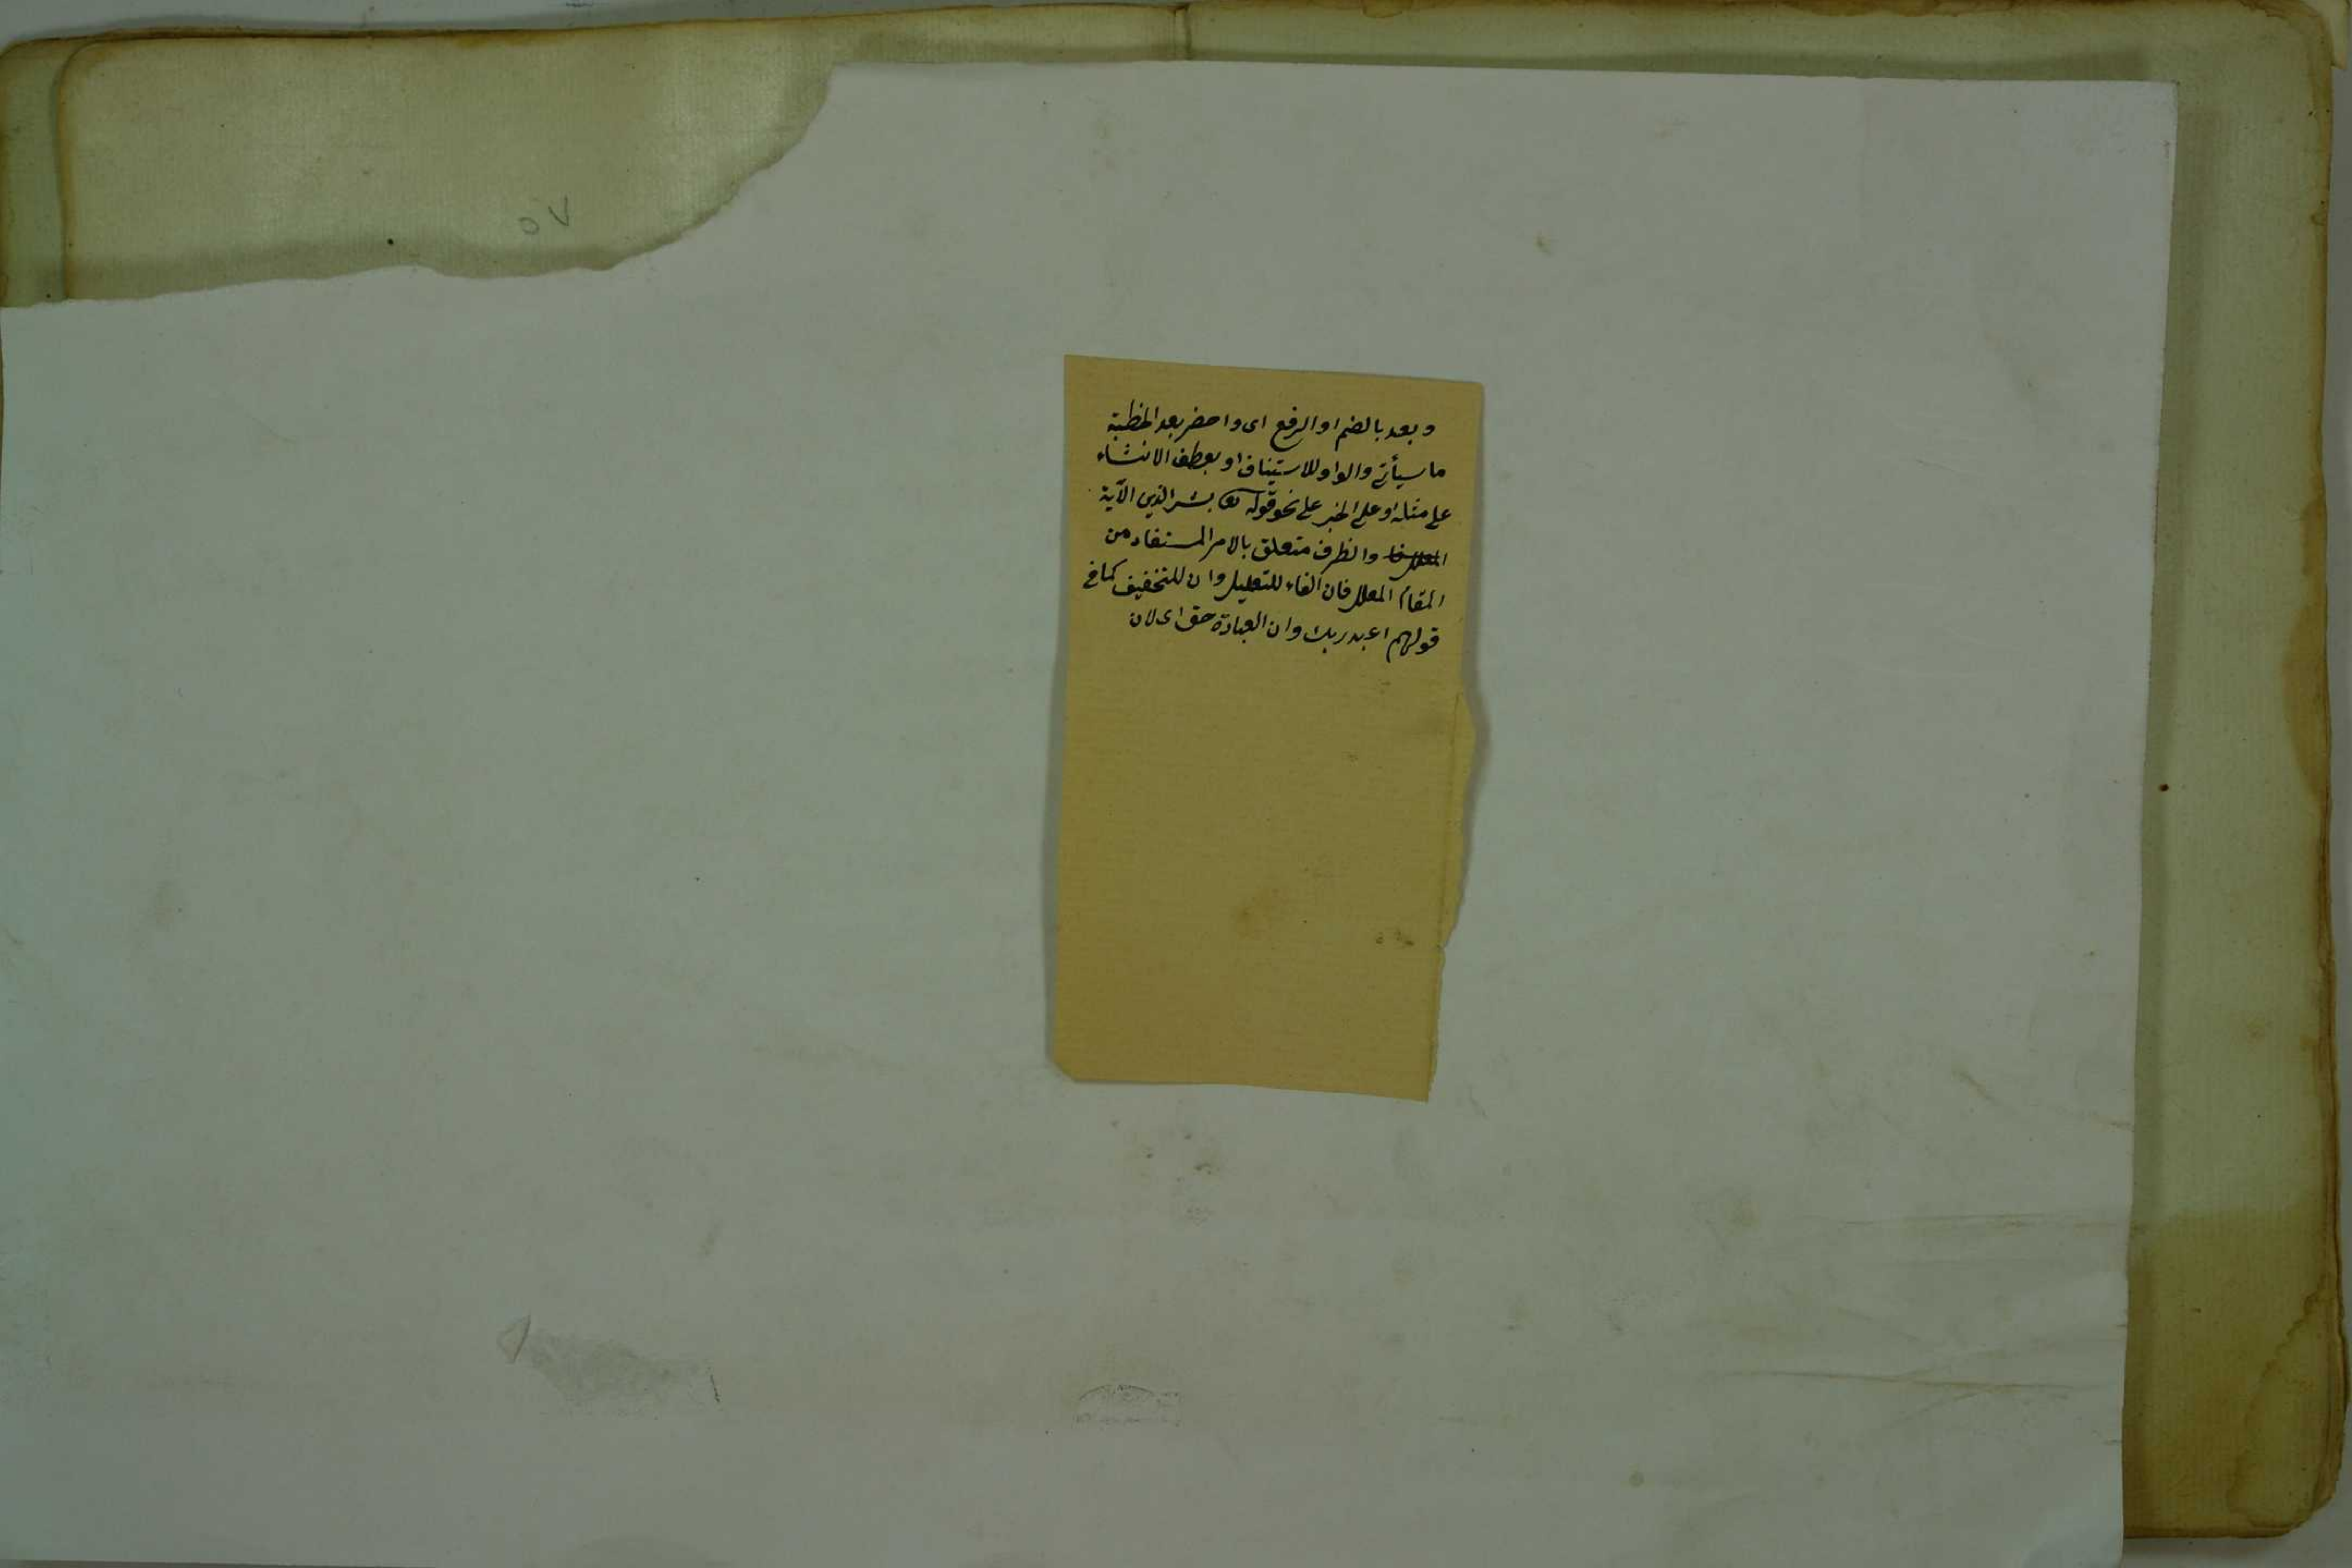 ٥٧
وبعد بالضم او الرفع اى واحضر بعد الخطبة
ما سيأتي والواو للاستيناف او بعطف الانشاء
على مثله او على الخبر على نحو قوله تع بشر الذين الآية
والظرف متعلق بالامر المستفاد من
المقام المعلل فان الفاء للتعليل وان للتخفيف كما في
قولهم اعبد ربك وان العبادة حق اى لان